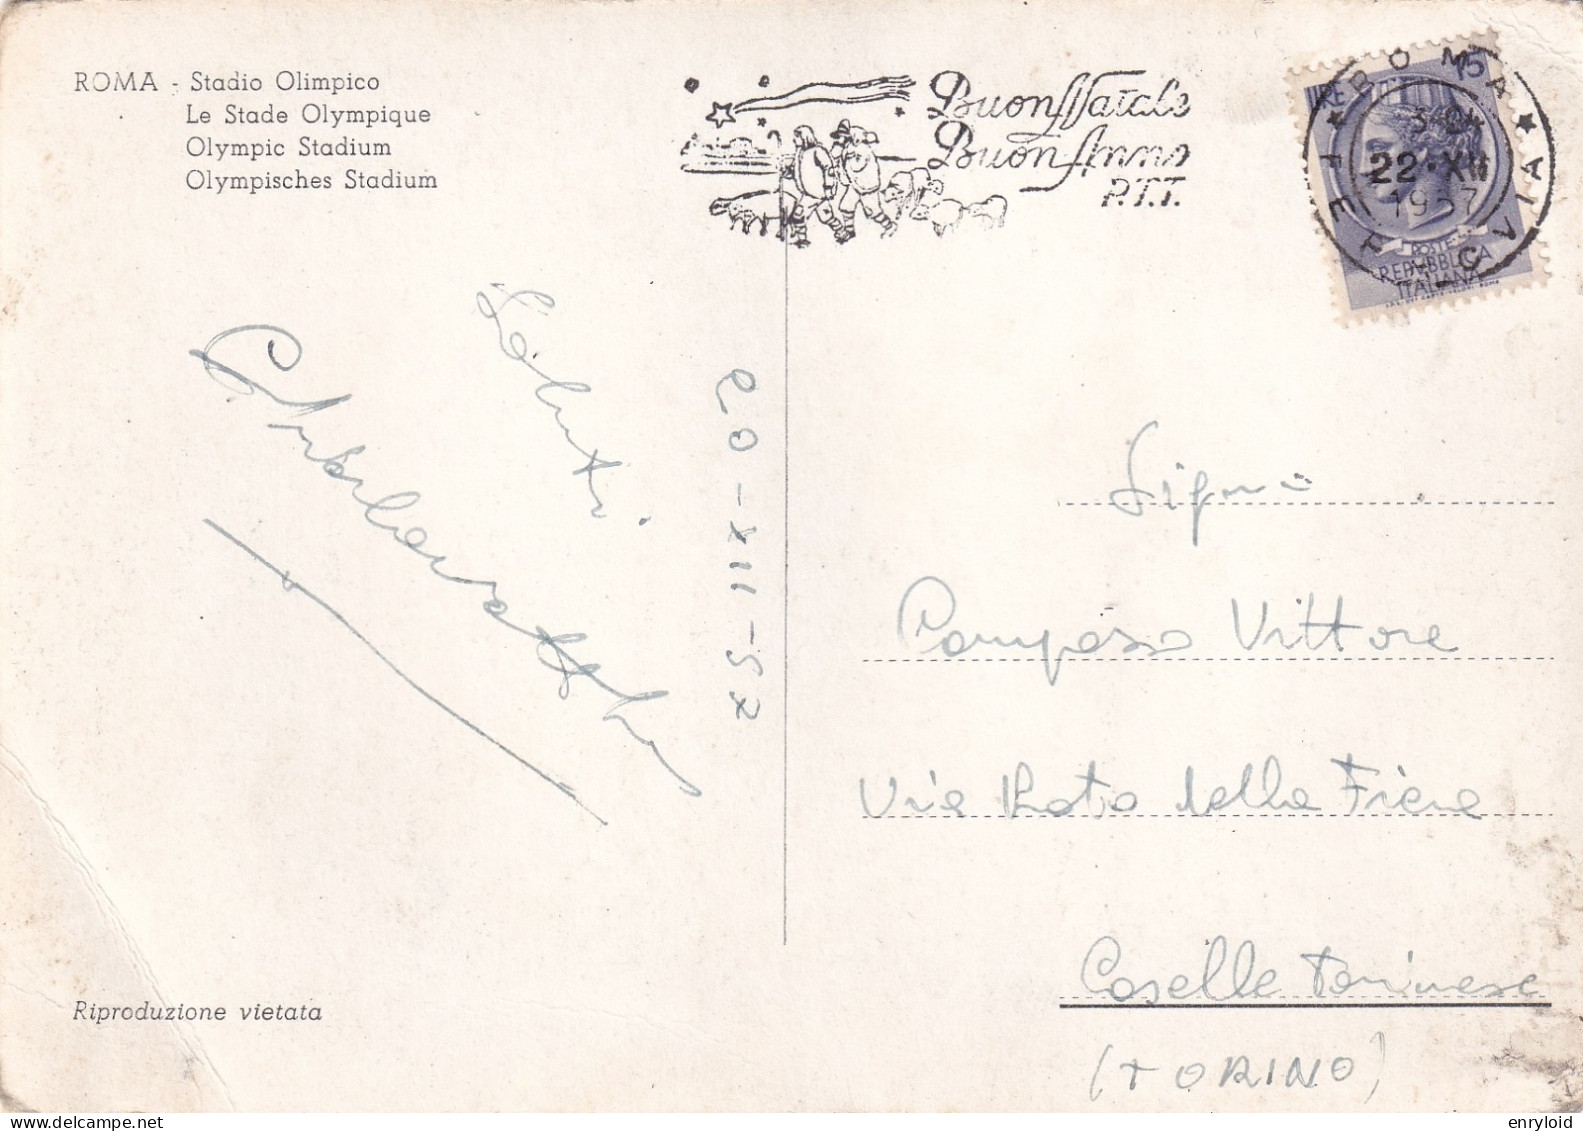 ROMA - Stadio Olimpico
Le Stade Olympique
Olympic Stadium
Olympisches Stadium
Buon Natale
Buon Anno
P.T.T.
ROMA
FERROVIA
22·XII
1957
15
LIRE
POSTE
REPVBBLICA
ITALIANA
Saluti
20-XII-57
Signor
Pomposo Vittore
Via Prato della Fiera
Caselle Torinese
(TORINO)
Riproduzione vietata
enryloid